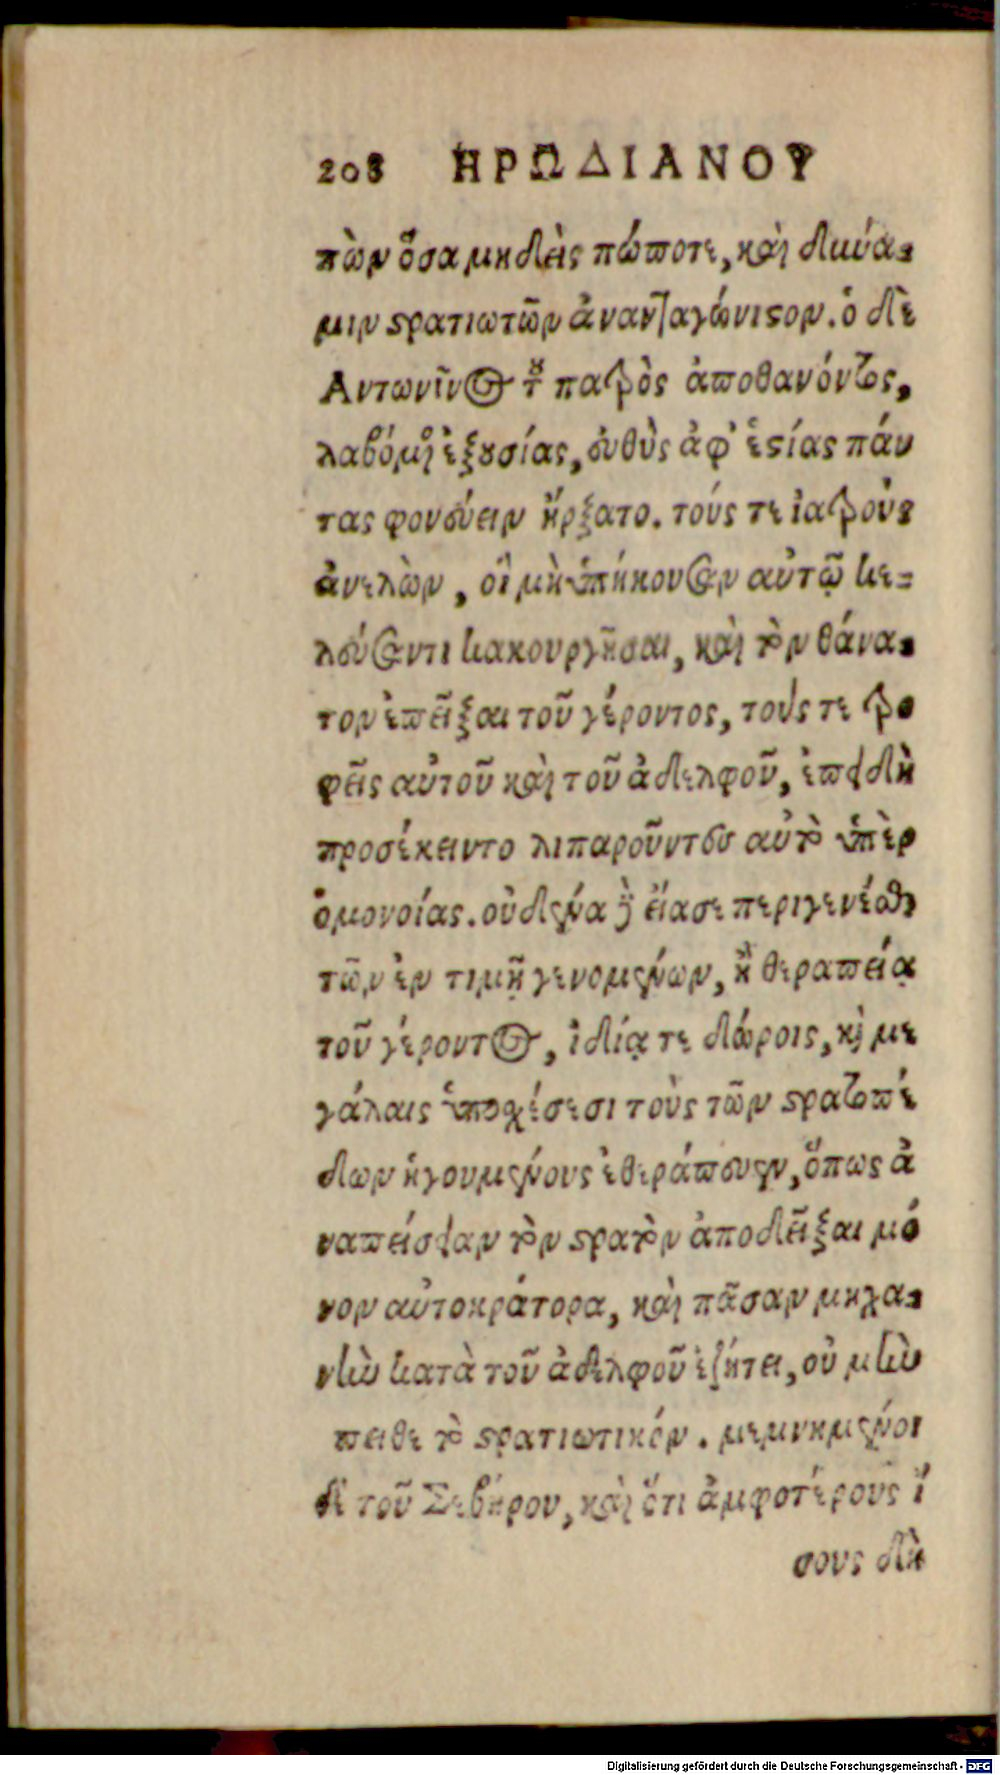 208 ΗΡΩΔΙΑΝΟΥ
πὼν ὅσα μηδεὶς πώποτε, καὶ δυνά-
μιν στρατιωτῶν ἀνανταγώνιστον. ὁ δὲ
Αντωνῖνος τοῦ πατρὸς ἀποθανόντος,
λαβόμενος ἐξουσίας, εὐθὺς ἀφ' ἑστίας πάν
τας φονεύειν ἤρξατο. τούς τε ἰατροὺς
ἀνελὼν, οἳ μὴ ὑπήκουσαν αὐτῷ κε-
λεύσαντι κακουργῆσαι, καὶ τὸν θάνα-
τον ἐπεῖξαι τοῦ γέροντος, τούς τε τρο
φεῖς αὐτοῦ καὶ τοῦ ἀδελφοῦ, ἐπειδὴ
προσέκειντο λιπαροῦντες αὐτὸ ὑπὲρ
ὁμονοίας. οὐδένα γὰρ εἴασε περιγενέσθαι
τῶν ἐν τιμῇ γενομένων, ἢ θεραπείᾳ
τοῦ γέροντος, ἰδίᾳ τε δώροις, καὶ με
γάλαις ὑποσχέσεσι τοὺς τῶν στρατοπέ
δων ἡγουμένους ἐθεράπευεν, ὅπως ἀ
ναπείσειαν τὸν στρατὸν ἀποδεῖξαι μό
νον αὐτοκράτορα, καὶ πᾶσαν μηχα-
νὴν κατὰ τοῦ ἀδελφοῦ ἐζήτει, οὐ μὴν
πειθε τὸ στρατιωτικόν. μεμνημένοι
δὲ τοῦ Σεβήρου, καὶ ὅτι ἀμφοτέρους ἴ
σους δὴ
Digitalisierung gefördert durch die Deutsche Forschungsgemeinschaft - DFG